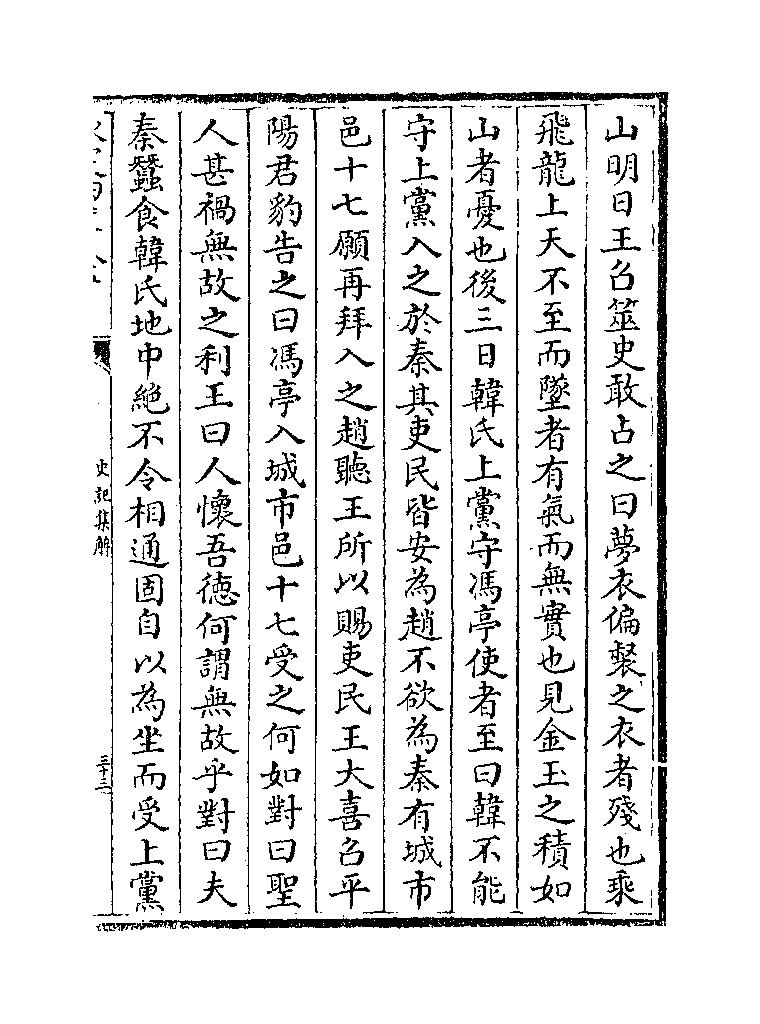 山明日王召筮史敢占之曰夢衣偏裻之衣者殘也乘
飛龍上天不至而墜者有氣而無實也見金玉之積如
山者憂也後三日韓氏上黨守馮亭使者至曰韓不能
守上黨入之於秦其吏民皆安為趙不欲為秦有城市
邑十七願再拜入之趙聽王所以賜吏民王大喜召平
陽君豹告之曰馮亭入城市邑十七受之何如對曰聖
人甚禍無故之利王曰人懷吾徳何謂無故乎對曰夫
秦蠶食韓氏地中絶不令相通固自以為坐而受上黨
史記集解
三十三